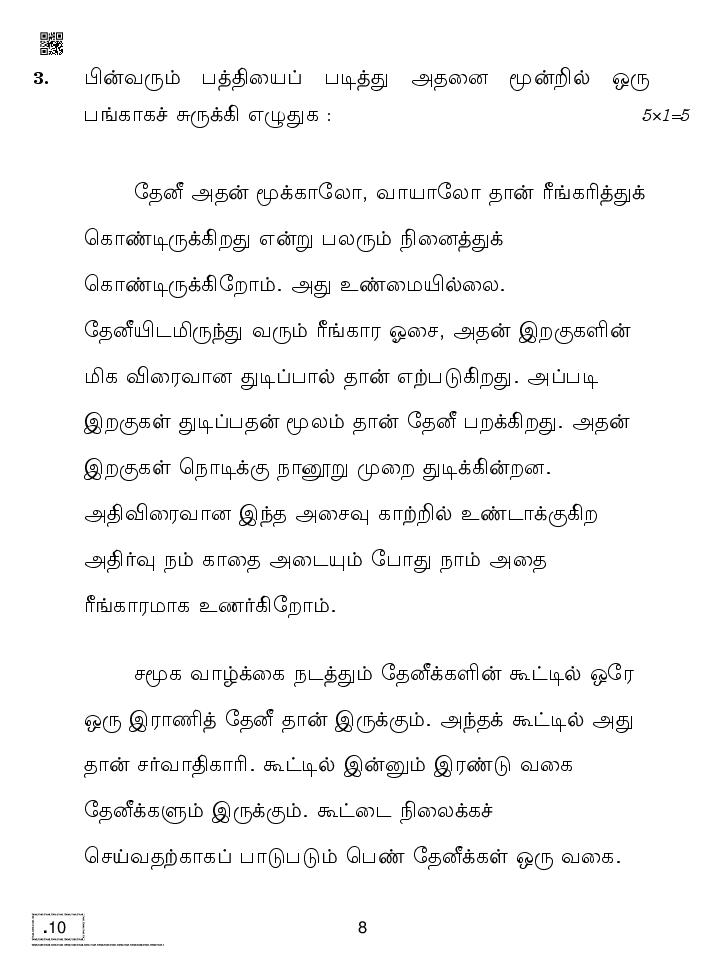 3. பின்வரும் பத்தியைப் படித்து அதனை மூன்றில் ஒரு
பங்காகச் சுருக்கி எழுதுக : 5×1=5
தேனீ அதன் மூக்காலோ, வாயாலோ தான் ரீங்கரித்துக்
கொண்டிருக்கிறது என்று பலரும் நினைத்துக்
கொண்டிருக்கிறோம். அது உண்மையில்லை.
தேனீயிடமிருந்து வரும் ரீங்கார ஓசை, அதன் இறகுகளின்
மிக விரைவான துடிப்பால் தான் எற்படுகிறது. அப்படி
இறகுகள் துடிப்பதன் மூலம் தான் தேனீ பறக்கிறது. அதன்
இறகுகள் நொடிக்கு நானூறு முறை துடிக்கின்றன.
அதிவிரைவான இந்த அசைவு காற்றில் உண்டாக்குகிற
அதிர்வு நம் காதை அடையும் போது நாம் அதை
ரீங்காரமாக உணர்கிறோம்.
சமூக வாழ்க்கை நடத்தும் தேனீக்களின் கூட்டில் ஒரே
ஒரு இராணித் தேனீ தான் இருக்கும். அந்தக் கூட்டில் அது
தான் சர்வாதிகாரி. கூட்டில் இன்னும் இரண்டு வகை
தேனீக்களும் இருக்கும். கூட்டை நிலைக்கச்
செய்வதற்காகப் பாடுபடும் பெண் தேனீக்கள் ஒரு வகை.
.10 8